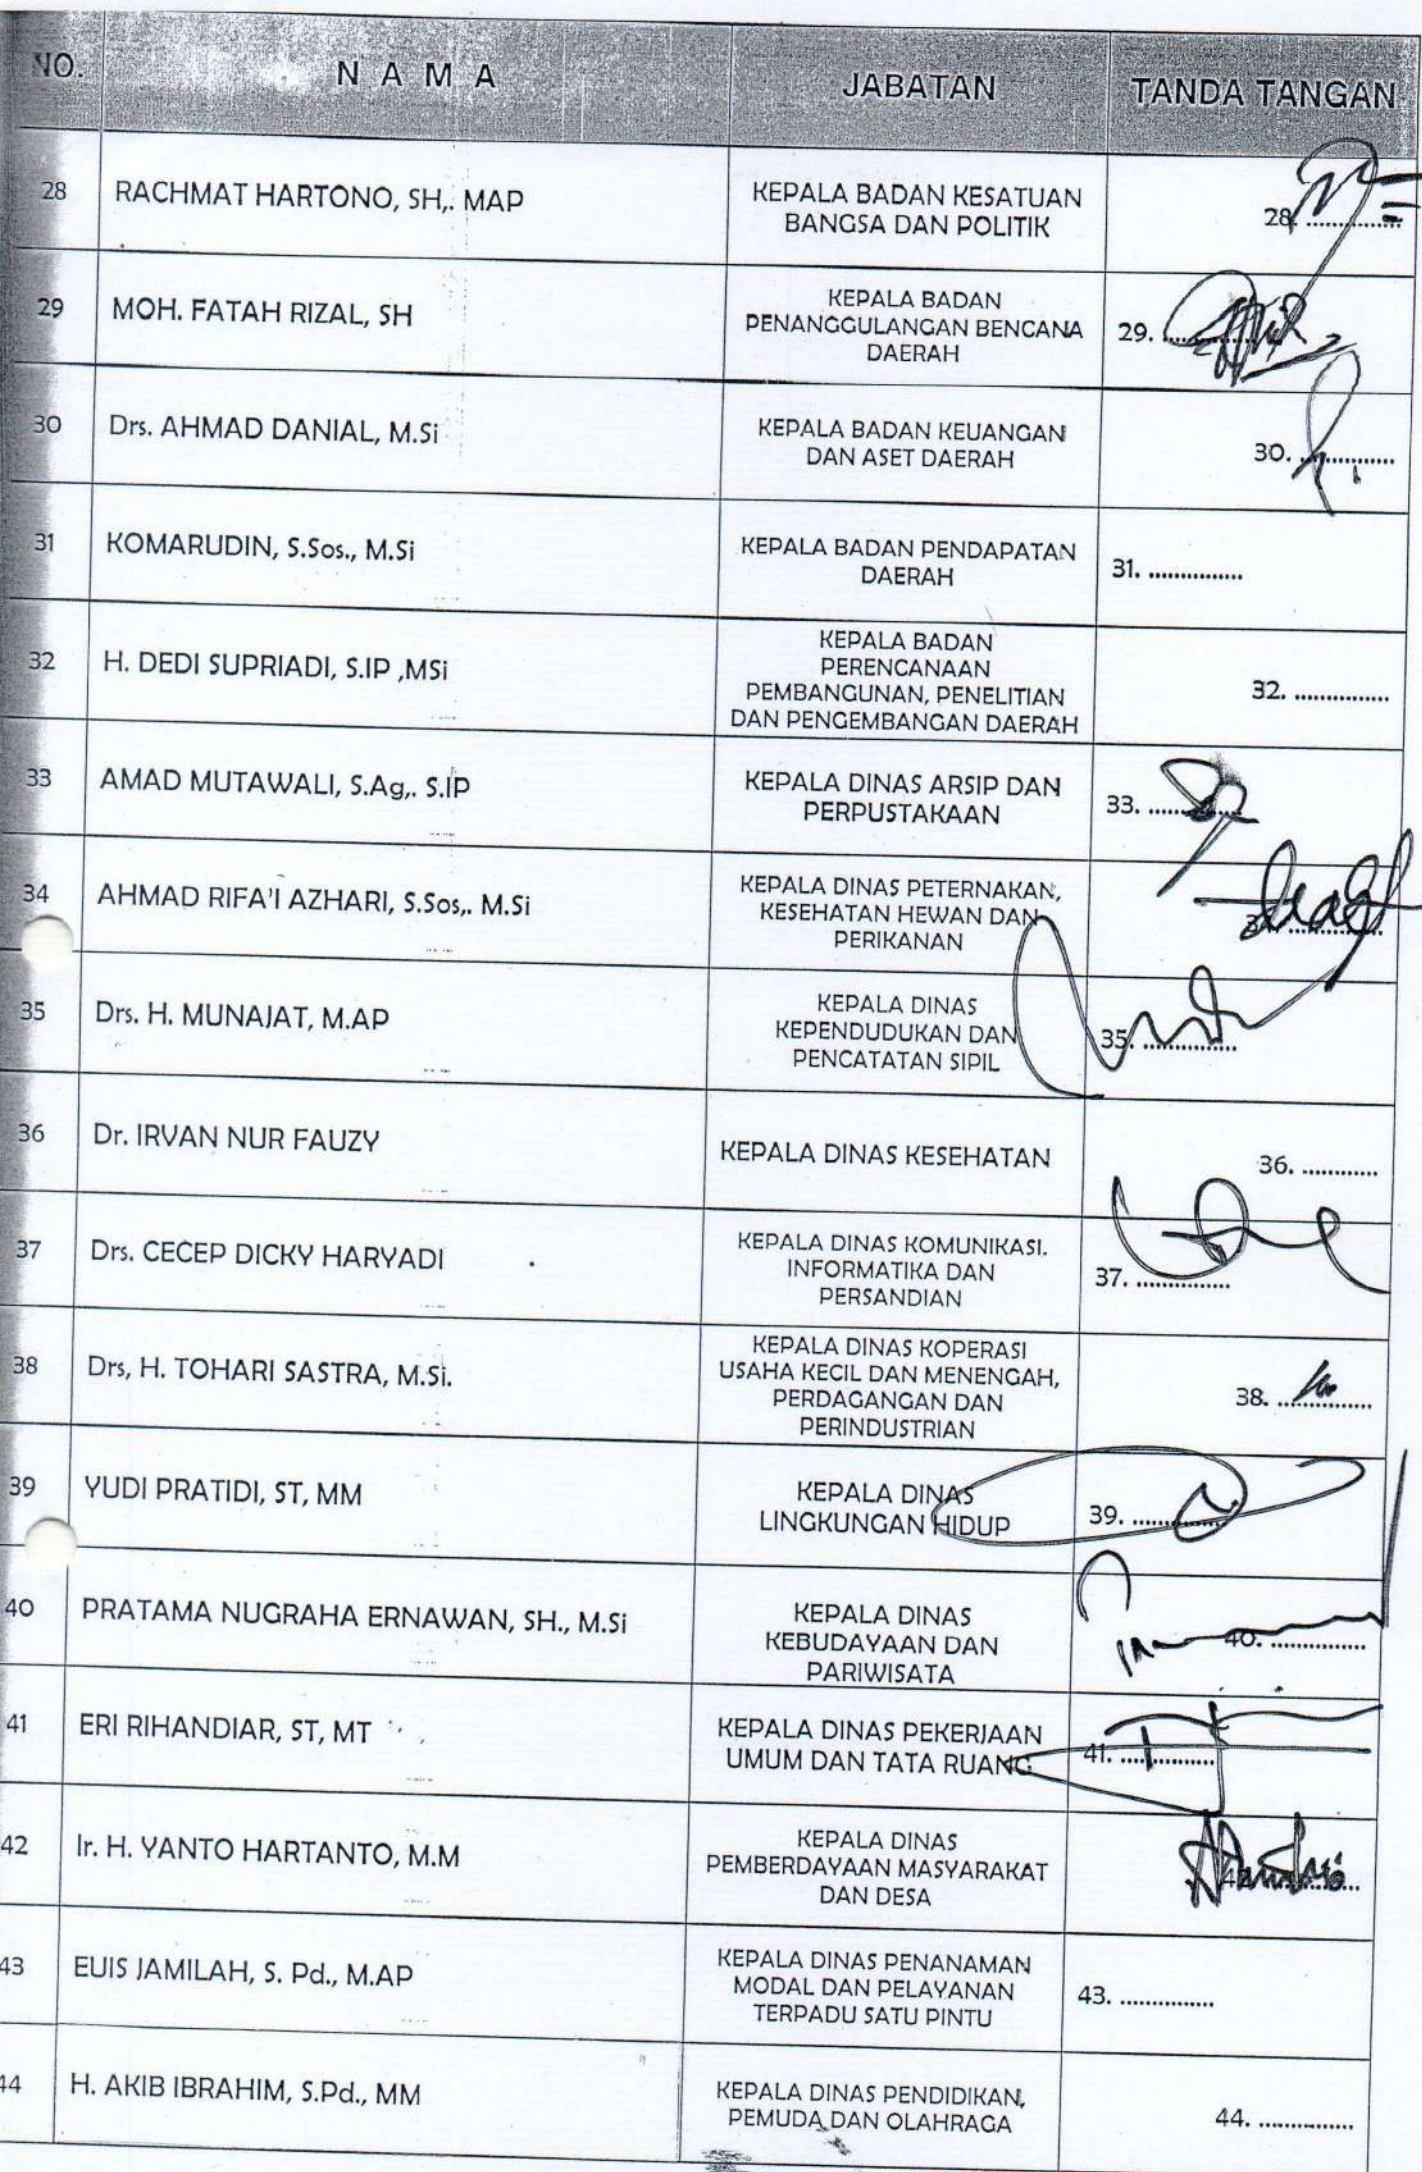 NO. N A M A JABATAN TANDA TANGAN
28 RACHMAT HARTONO, SH,. MAP KEPALA BADAN KESATUAN
BANGSA DAN POLITIK 28. ...............
29 MOH. FATAH RIZAL, SH KEPALA BADAN
PENANGGULANGAN BENCANA
DAERAH 29. ...............
30 Drs. AHMAD DANIAL, M.Si KEPALA BADAN KEUANGAN
DAN ASET DAERAH 30. ...............
31 KOMARUDIN, S.Sos., M.Si KEPALA BADAN PENDAPATAN
DAERAH 31. ...............
32 H. DEDI SUPRIADI, S.IP ,MSi KEPALA BADAN
PERENCANAAN
PEMBANGUNAN, PENELITIAN
DAN PENGEMBANGAN DAERAH 32. ...............
33 AMAD MUTAWALI, S.Ag,. S.IP KEPALA DINAS ARSIP DAN
PERPUSTAKAAN 33. ...............
34 AHMAD RIFA'I AZHARI, S.Sos,. M.Si KEPALA DINAS PETERNAKAN,
KESEHATAN HEWAN DAN
PERIKANAN
35 Drs. H. MUNAJAT, M.AP KEPALA DINAS
KEPENDUDUKAN DAN
PENCATATAN SIPIL 35. ...............
36 Dr. IRVAN NUR FAUZY KEPALA DINAS KESEHATAN 36. ............
37 Drs. CECEP DICKY HARYADI KEPALA DINAS KOMUNIKASI.
INFORMATIKA DAN
PERSANDIAN 37. ...............
38 Drs, H. TOHARI SASTRA, M.Si. KEPALA DINAS KOPERASI
USAHA KECIL DAN MENENGAH,
PERDAGANGAN DAN
PERINDUSTRIAN 38. ...............
39 YUDI PRATIDI, ST, MM KEPALA DINAS
LINGKUNGAN HIDUP 39. ...............
40 PRATAMA NUGRAHA ERNAWAN, SH., M.Si KEPALA DINAS
KEBUDAYAAN DAN
PARIWISATA 40. ...............
41 ERI RIHANDIAR, ST, MT KEPALA DINAS PEKERJAAN
UMUM DAN TATA RUANG 41. ...............
42 Ir. H. YANTO HARTANTO, M.M KEPALA DINAS
PEMBERDAYAAN MASYARAKAT
DAN DESA
43 EUIS JAMILAH, S. Pd., M.AP KEPALA DINAS PENANAMAN
MODAL DAN PELAYANAN
TERPADU SATU PINTU 43. ...............
44 H. AKIB IBRAHIM, S.Pd., MM KEPALA DINAS PENDIDIKAN,
PEMUDA DAN OLAHRAGA 44. ...............